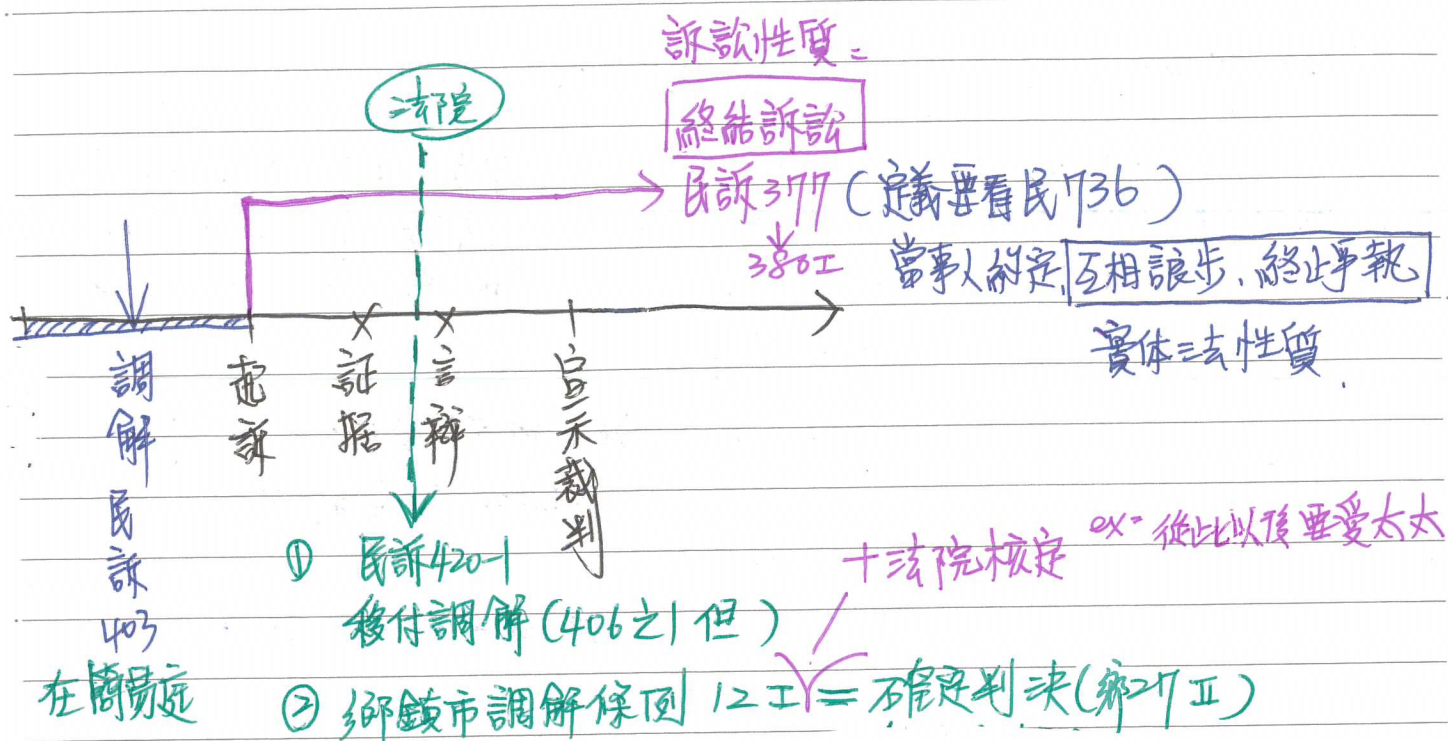 訴訟性質:
法院
終結訴訟
民訴377(定義要看民736)
380 I 當事人約定,互相讓步、終止爭執
實体法性質
調解民訴403
起訴
証据
言辯
宣示裁判
在簡易庭
① 民訴420-1
移付調解(406之1但)
+法院核定 ex: 從此以後要愛太太
② 鄉鎮市調解條例 12 I = 確定判決(鄉27 II)